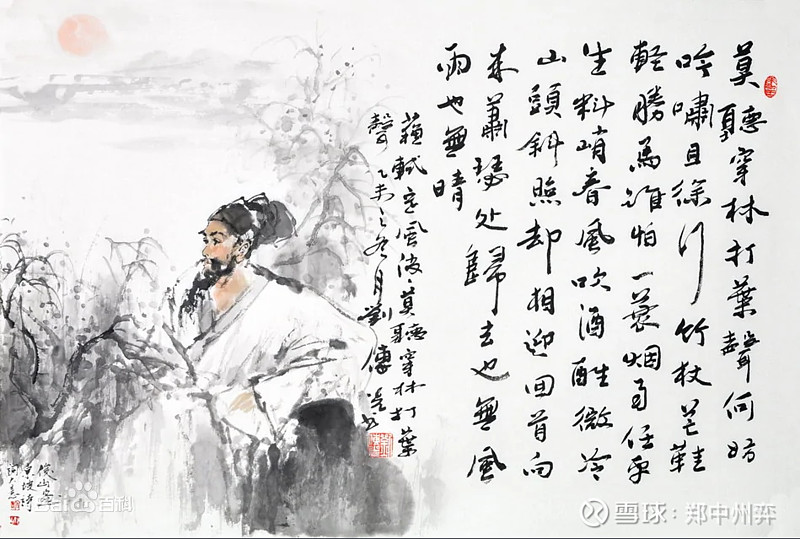 莫聽穿林打葉聲何妨
吟嘯且徐行竹杖芒鞋
輕勝馬誰怕一蓑烟雨任平
生料峭春風吹酒醒微冷
山頭斜照却相迎回首向
来蕭瑟处歸去也無風
雨也無晴
蘇軾定風波莫聽穿林打葉
聲乙未之冬月劉傳
俊山畫
東坡詩
Baidu百科
雪球：郑中州弈